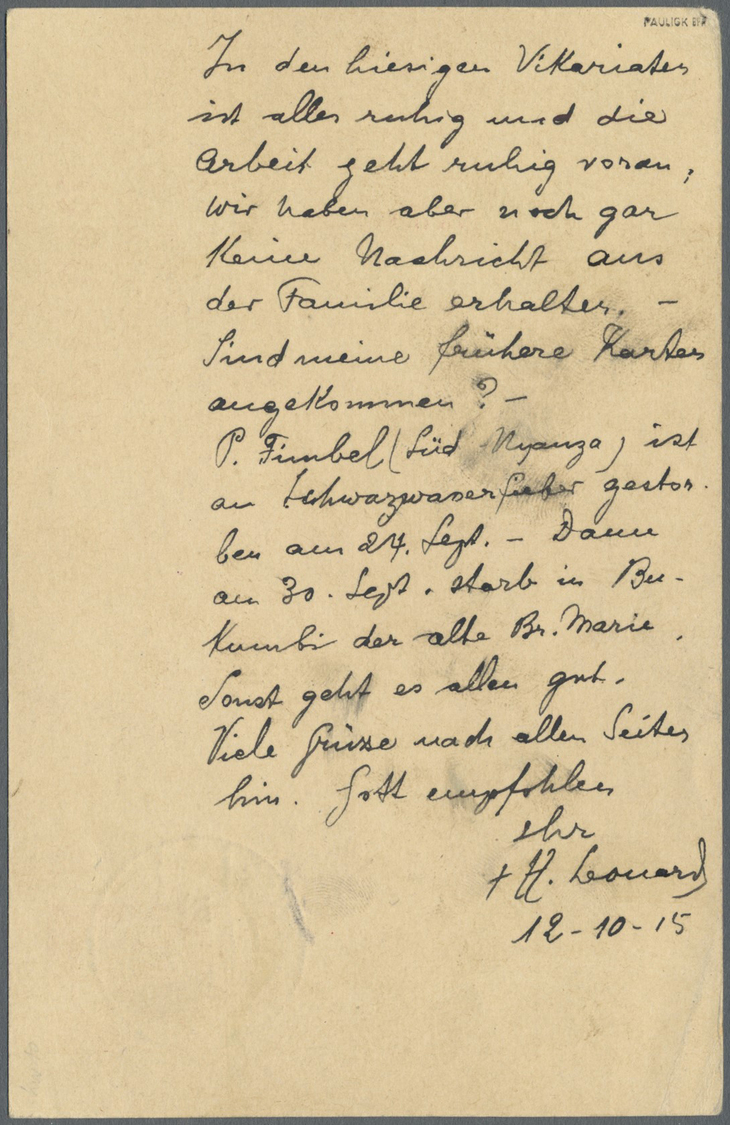 PAULIGK BPP
In den hiesigen Vikariaten
ist alles ruhig und die
Arbeit geht ruhig voran;
wir haben aber noch gar
keine Nachricht aus
der Familie erhalten. –
Sind meine frühere Karten
angekommen? –
P. Fimbel (Süd Nyanza) ist
an Schwarzwasserfieber gestor-
ben am 24. Sept. – Dann
am 30. Sept. starb in Bu-
kumbi der alte Br. Marie.
Sonst geht es allen gut.
Viele Grüsse nach allen Seiten
hin. Gott empfohlen
Ihr
+ H. Leonard
12-10-15